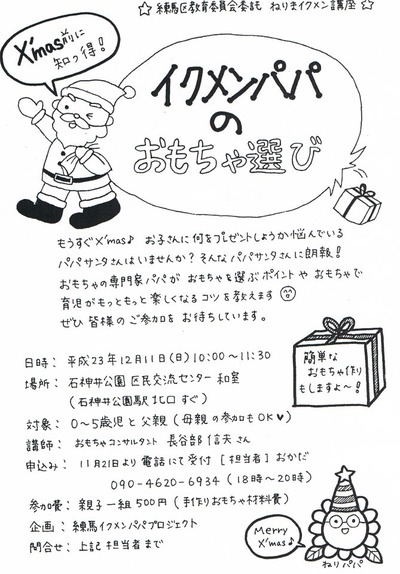 ☆ 練馬区教育委員会委託 ねりまイクメン講座 ☆
X'mas前に
知っ得!
イクメンパパ
の
おもちゃ選び
もうすぐX'mas♪ お子さんに何をプレゼントしようか悩んでいる
パパサンタさんはいませんか? そんなパパサンタさんに朗報!
おもちゃの専門家パパが おもちゃを選ぶポイントや おもちゃで
育児がもっともっと楽しくなるコツを教えます
ぜひ 皆様の ご参加を お待ちしています。
簡単な
おもちゃ作り
もしますよ～!
日時: 平成23年12月11日(日)10:00～11:30
場所: 石神井公園 区民交流センター 和室
(石神井公園駅 北口 すぐ)
対象: 0～5歳児と父親(母親の参加もOK♥)
講師: おもちゃコンサルタント 長谷部 信夫 さん
申込み: 11月21日より 電話にて受付 [担当者] おかだ
090-4620-6934 (18時～20時)
参加費: 親子一組 500円 (手作りおもちゃ材料費)
企画: 練馬イクメンパパプロジェクト
問合せ: 上記 担当者まで
Merry
X'mas♪
ねりパパ